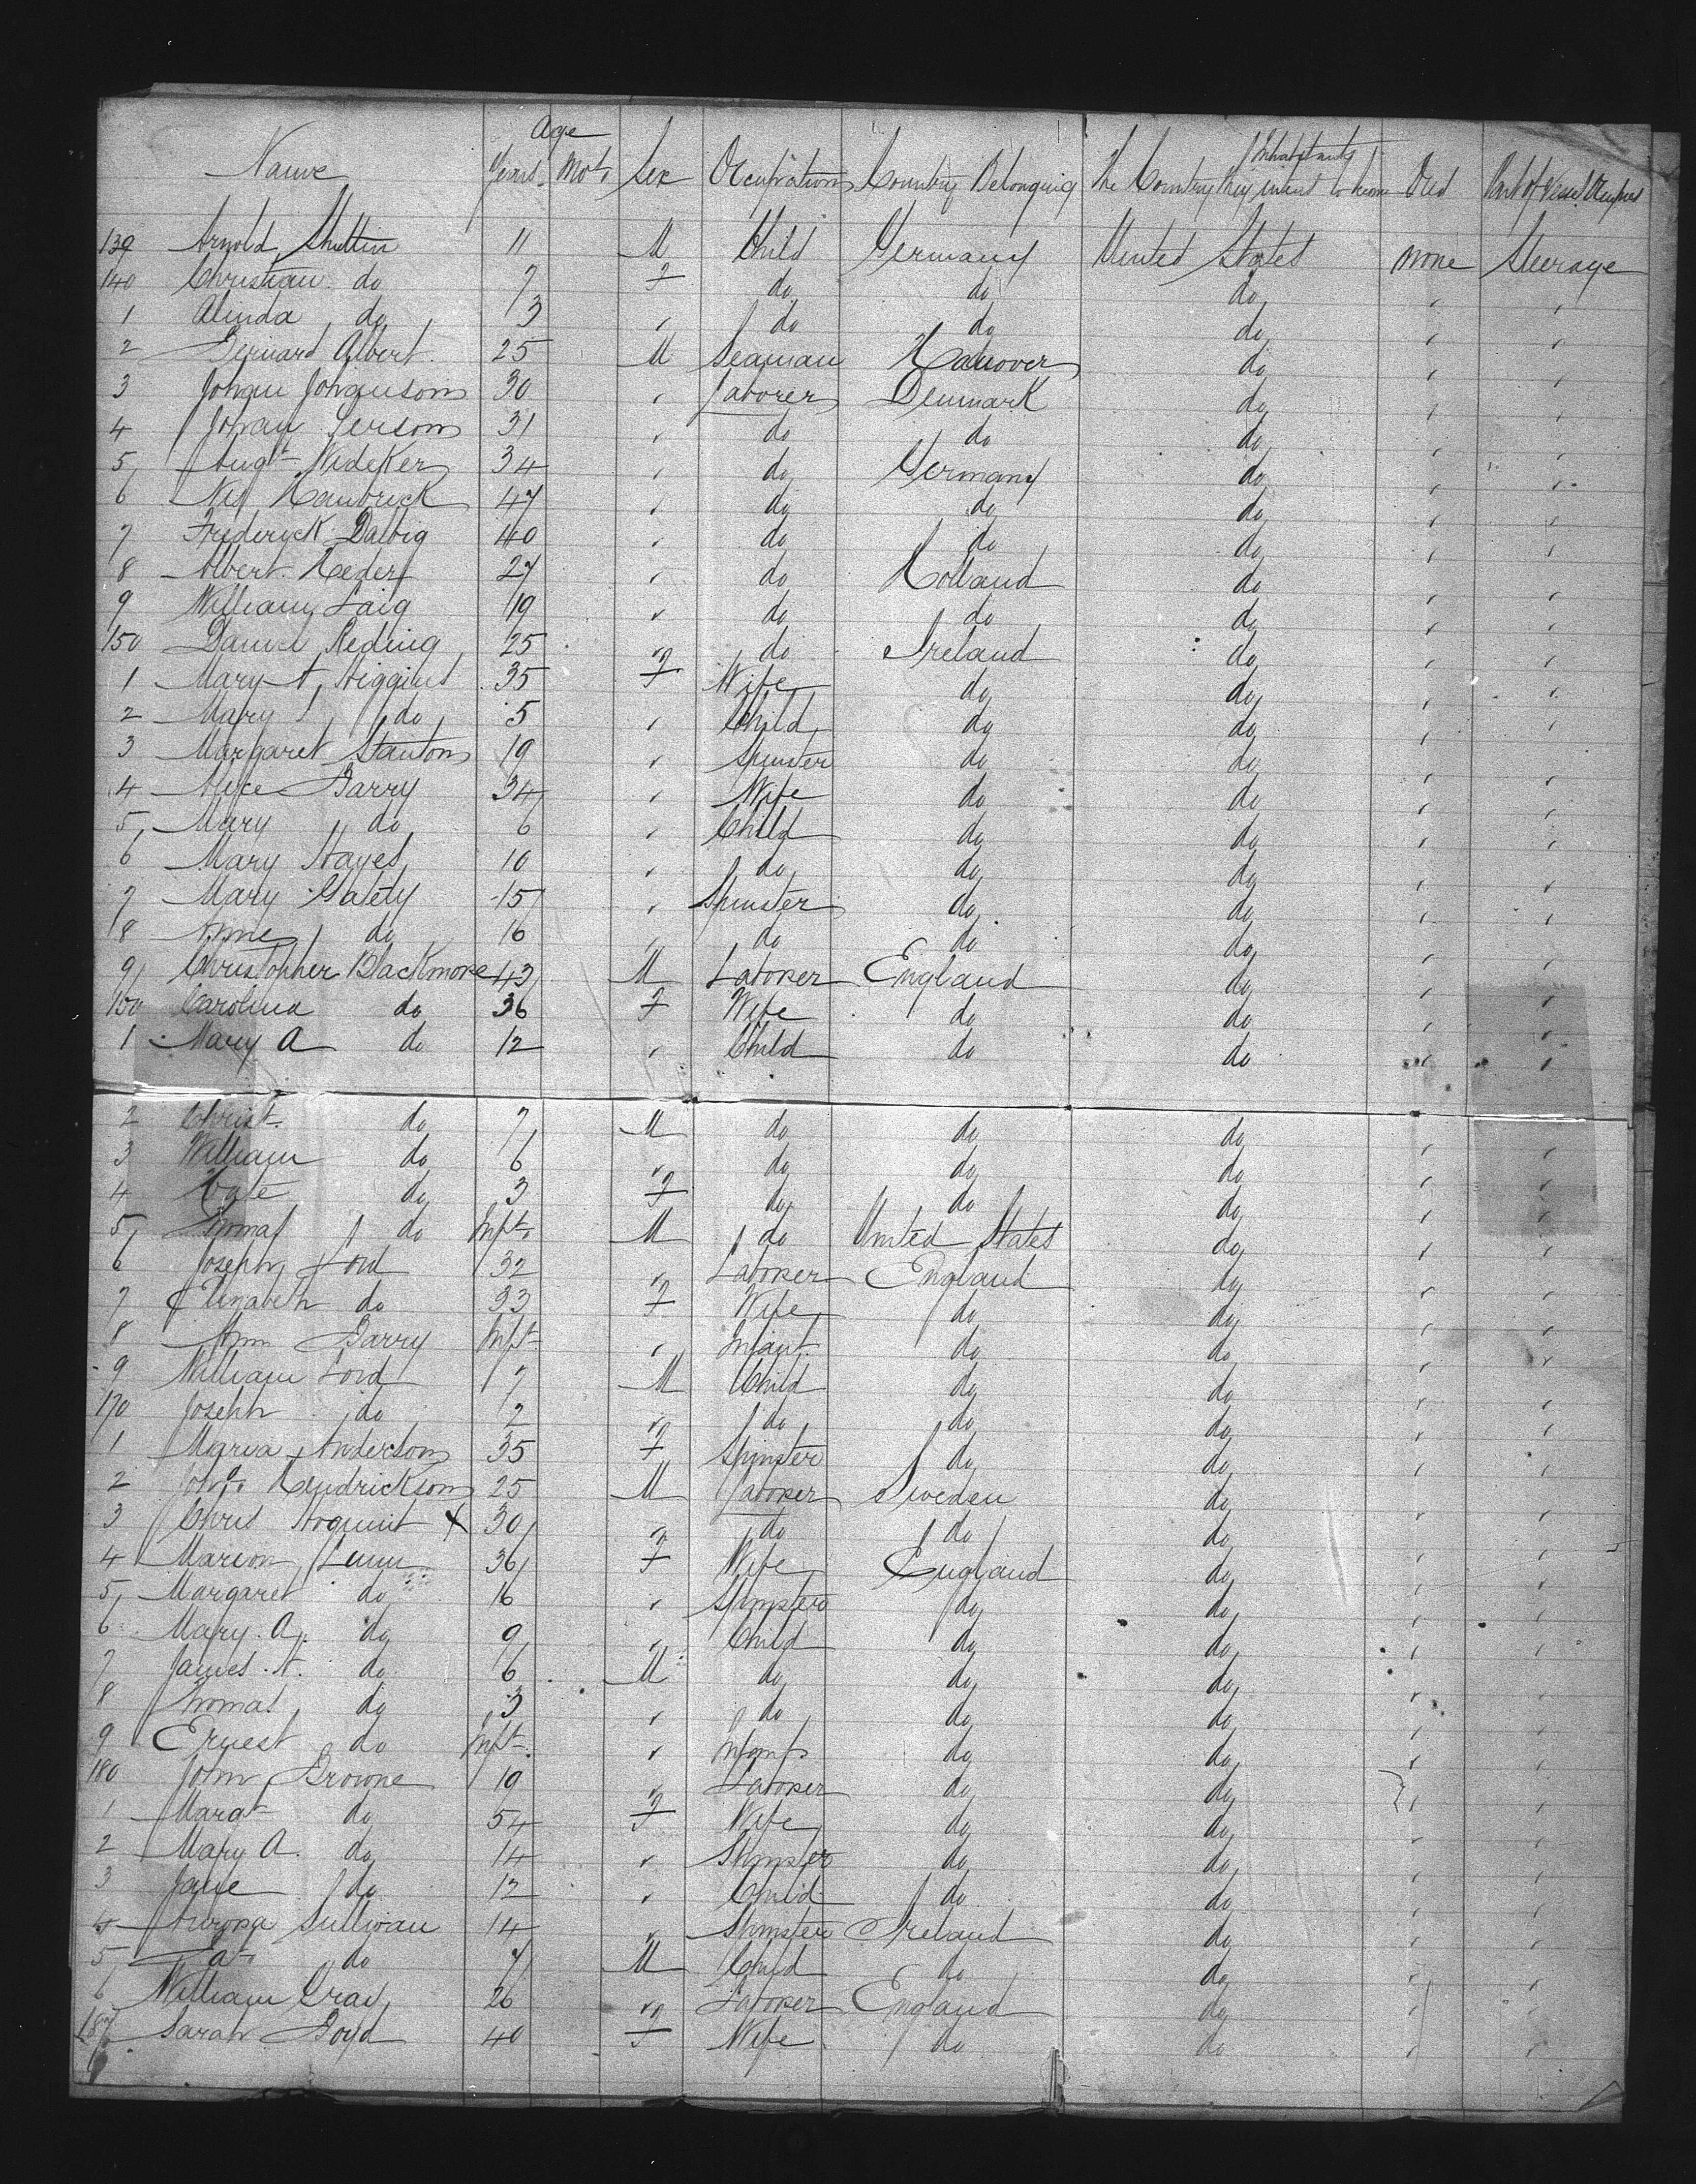 Age
Name Years Mos. Sex Occupation Country Belonging The Country they intend to become Inhabitants Died Part of Vessel Occupied
139 Arnold 11 M Child Germany United States none Steerage
140 Christian do 7 F do do do , ,
1 Alinda do 3 , do do do , ,
2 Albert 25 M Seaman Hanover do , ,
3 30 , Laborer Denmark do , ,
4 Johan 31 , do do do , ,
5 Augt Wideker 34 , do Germany do , ,
6 47 , do do do , ,
7 Frederick 40 , do do do , ,
8 Albert 27 , do Holland do , ,
9 William 19 , do do do , ,
150 Daniel Reding 25 " do Ireland do , ,
1 Mary A Higgins 35 F Wife do do , ,
2 Mary do 5 , Child do do , ,
3 Margaret Stanton 19 , Spinster do do , ,
4 Alice Barry 34 , Wife do do , ,
5 Mary do 6 , Child do do , ,
6 Mary Hayes 10 , do do do , ,
7 Mary 15 , Spinster do do , ,
8 Anne do 16 , do do do , ,
9 Christopher Blackmore 43 M Laborer England do , ,
Carolina do 36 F Wife do do , ,
1 Mary A do 12 , Child do do , ,
2 Christ. do 7 M do do do , ,
3 William do 6 , do do do , ,
4 Kate do 3 F do do do , ,
5 Thomas do Inft. M do United States do , ,
6 Joseph Lord 32 " Laborer England do , ,
7 Elizabeth do 33 F Wife do do , ,
8 Ann Barry Inft , Infant do do , ,
9 William Lord 7 M Child do do , ,
170 Joseph do 2 " do do do , ,
1 Maria Anderson 35 F Spinster do do , ,
2 Hendrickson 25 M Laborer Sweden do , ,
3 Chris x 30 " do do do , ,
4 Marion 36 F Wife England do , ,
5 Margaret do 16 , Spinster do do , ,
6 Mary A. do 9 , Child do do , ,
7 James do 6 M do do do , ,
8 Thomas do 3 , do do do , ,
9 Ernest do Inft. , Infant do do , ,
180 John Browne 19 " Laborer do do , ,
1 Margt do 54 F Wife do do , ,
2 Mary A. do 14 , Spinster do do , ,
3 Jane do 12 , Child do do , ,
4 Sullivan 14 , Spinster Ireland do , ,
5 Pat do 7 M Child do do , ,
6 William Gray 26 " Laborer England do , ,
187 Sarah Boyd 40 F Wife do do , ,